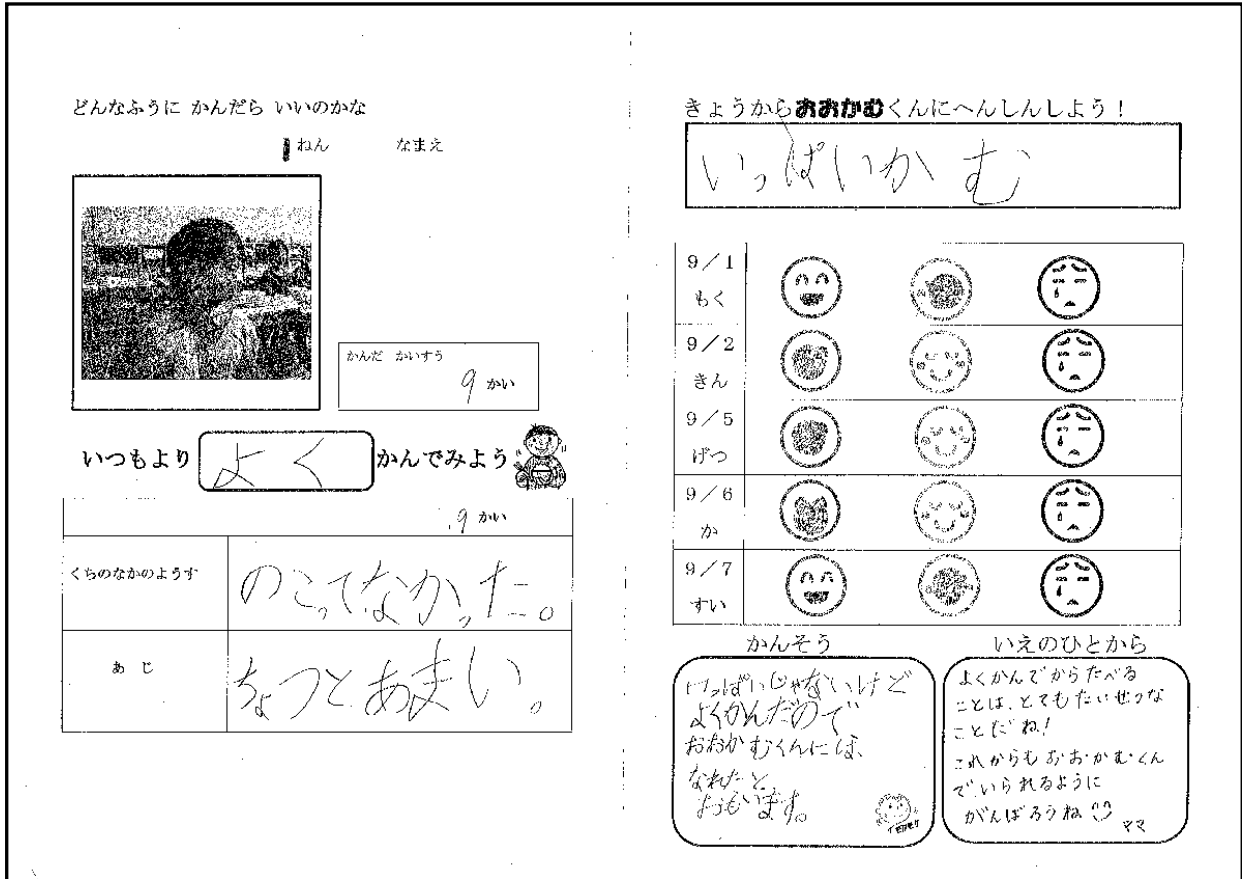 どんなふうに かんだら いいのかな
1ねん なまえ
かんだ かいすう
9 かい
いつもより よく かんでみよう
9 かい
くちのなかのようす のこってなかった。
あじ ちょっとあまい。
きょうからおおかむくんにへんしんしよう！
いっぱいかむ
9／1
もく
9／2
きん
9／5
げつ
9／6
か
9／7
すい
かんそう
いっぱいじゃないけど
よくかんだので
おおかむくんには、
なれたと
おもいます。
いえのひとから
よくかんでからたべる
ことは、とてもたいせつな
ことだね!
これからもおおかむくん
でいられるように
がんばろうね
ママ